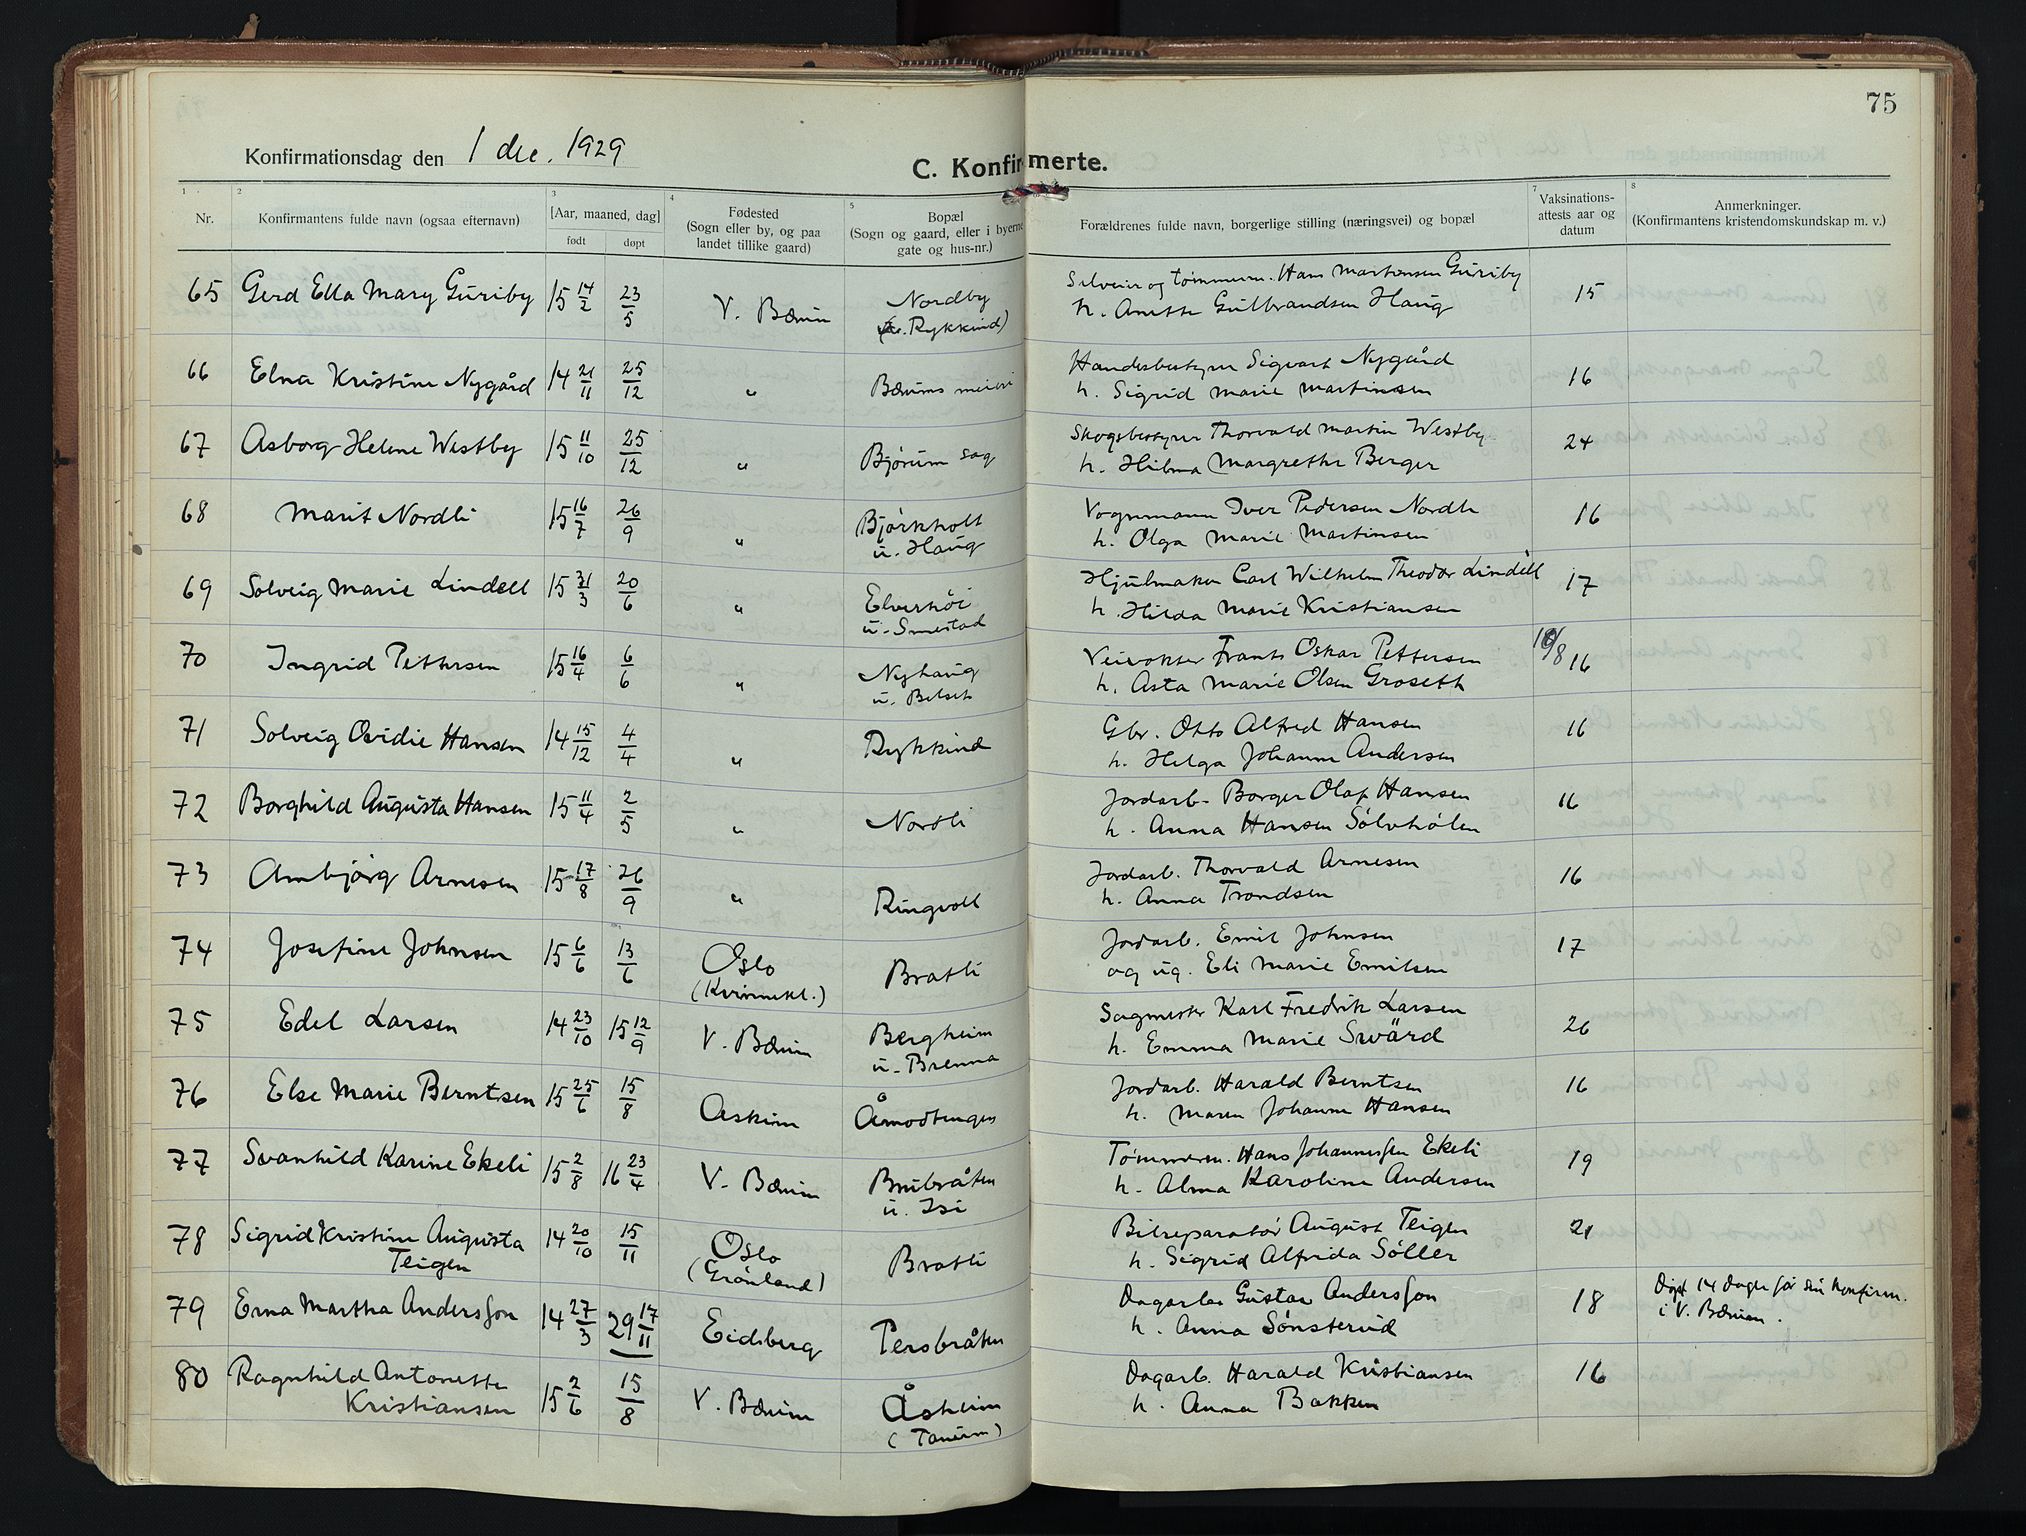 75
Konfirmationsdag den 1 dec. 1929
C. Konfirmerte.
1 2 3 4 5 7 8
Nr.
Konfirmantens fulde navn (ogsaa efternavn)
[Aar, maaned, dag]
født døpt
Fødested
(Sogn eller by, og paa
landet tillike gaard)
Bopæl
(Sogn og gaard, eller i byerne
gate og hus-nr.)
Forældrenes fulde navn, borgerlige stilling (næringsvei) og bopæl
Vaksinations-
attests aar og
datum
Anmerkninger.
(Konfirmantens kristendomskundskap m. v.)
65 Gerd Ella Mary Guriby 15 14/2 23/5 V. Bærum Nordby Selveier og tømmerm. Hans Martinsen Guriby 15
Rykkind) h. Anette Gulbrandsen Haug
66 Elna Kristine Nygård 14 21/11 25/12 " Bærums meieri Handesbestyrer Sigvart Nygård 16
h. Sigrid Marie Martinsen
67 Asborg Helene Westby 15 11/10 25/12 " Bjørum sag Skogsbestyrer Thorvald Martin Westby 24
h. Hilma Margrethe Berger
68 Marit Nordli 15 16/7 26/9 " Bjørkholt Vognmann Iver Pedersen Nordli 16
u. Haug h. Olga Marie Martinsen
69 Solveig Marie Lindell 15 31/3 20/6 " Elverhöi Hjulmaker Carl Wilhelm Theodor Lindell 17
u. Smestad h. Hilda Marie Kristiansen
70 Ingrid Pettersen 15 16/4 6/6 " Nyhaug Veivokter Frants Oskar Pettersen 16
u. Belset h. Asta Marie Olsen Groseth
71 Solveig Ovidie Hansen 14 15/12 4/4 " Rykkind Gbr. Otto Alfred Hansen 16
h. Helga Johanne Andersen
72 Borghild Augusta Hansen 15 11/4 2/5 " Nordli Jordarb. Borger Olaf Hansen 16
h. Anna Hansen Sølvhølen
73 Arnbjörg Arnesen 15 17/8 26/9 " Ringvoll Jordarb. Thorvald Arnesen 16
h. Anna Trondsen
74 Josefine Johnsen 15 6/6 13/6 Oslo Bratli Jordarb. Emil Johnsen 17
(Kvinnekl.) og ug. Eli Marie Emilsen
75 Edel Larsen 14 23/10 15 12/9 V. Bærum Bergheim Sagmester Karl Fredrik Larsen 26
u. Brenna h. Emma Marie Swärd
76 Else Marie Berntsen 15 25/6 15/8 Askim Åmodtengen Jordarb. Harald Berntsen 16
h. Maren Johanne Hansen
77 Svanhild Karine Ekeli 15 2/8 16 23/4 V. Bærum Brubråten Tømmerm. Hans Johannessen Ekeli 19
u. Isi h. Alma Karoline Andersen
78 Sigrid Kristine Augusta 14 20/10 15/11 Oslo Bratli Bilreparatör August Teigen 21
Teigen (Grönland) h. Sigrid Alfrida Söller
79 Erna Martha Andersson 14 27/3 29 17/11 Eidsberg Persbråten Dagarb. Gustav Andersson 18 Døpt 14 dage før sin konfirm.
h. Anna Sønsterud i V. Bærum.
80 Ragnhild Antonette 15 2/6 15/8 V. Bærum Åsheim Dagarb. Harald Kristiansen 16
Kristiansen (Tanum) h. Anna Bakken